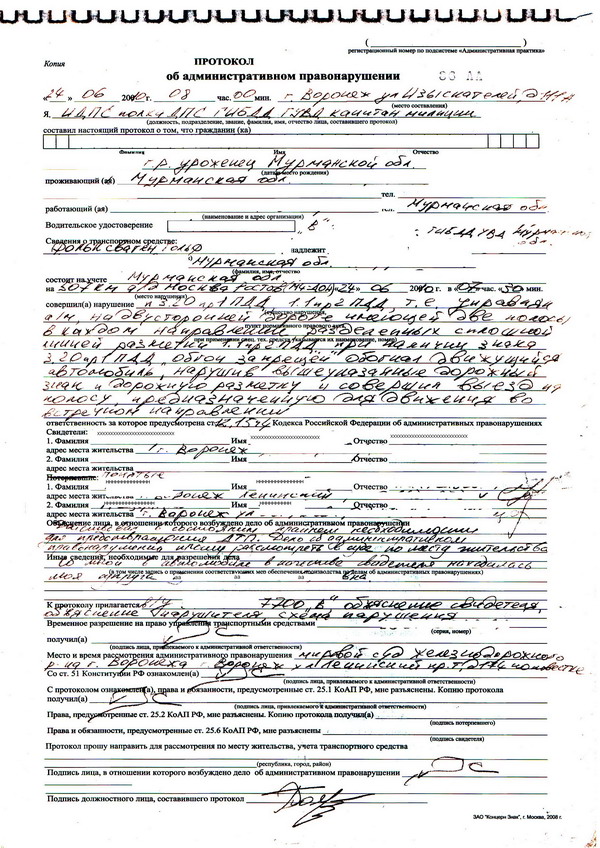 (                    )
регистрационный номер по подсистеме «Административная практика»
Копия
ПРОТОКОЛ
об административном правонарушении
24 » 06 2010г. 08 час. 00 мин. г. Воронеж ул Изыскателей д.
(место составления)
Я, ИДПС полка ДПС ГИБДД ГУВД капитан милиции
(должность, подразделение, звание, фамилия, имя, отчество лица, составившего протокол)
составил настоящий протокол о том, что гражданин (ка)
Фамилия Имя Отчество
г.р. уроженец Мурманской обл.
(дата и место рождения)
проживающий (ая) Мурманская обл.
тел.
работающий (ая) тел. Мурманская обл.
(наименование и адрес организации)
Водительское удостоверение "В"
ГИБДД УВД обл.
Сведения о транспортном средстве:
Фольксваген Гольф
Мурманская обл.
(фамилия, имя, отчество
состоит на учете Мурманская обл.
на 507 км а/д Москва Ростов «24» 06 2010 г. в час. мин.
(место нарушения)
совершил(а) нарушение п 3.20 пр1 ПДД 1.1 пр2 ПДД, т.е. управляя
а/м, на двусторонней дороге имеющей две полосы
пункт нормативного правового акта,
в каждом направлении разделенных сплошной
линией разметки пр2 ПДД при наличии знака
при применении спец. тех. средств указывается их наименование, номер)
3.20 пр1 ПДД „обгон запрещён" обогнал движущийся
автомобиль, нарушив вышеуказанные дорожный
знак и дорожную разметку и совершил выезд на
полосу, предназначенную для движения во
встречном направлении
ответственность за которое предусмотрена ч. 4 ст. Кодекса Российской Федерации об административных правонарушениях
Свидетели:
1. Фамилия Имя Отчество
адрес места жительства г. Воронеж
2. Фамилия Имя Отчество
адрес места жительства
Потерпевшие: понятые
1. Фамилия Имя Отчество
адрес места Ленинский
2. Фамилия Имя Отчество
адрес места жительства г. Воронеж ул
Объяснение лица, в отношении которого возбуждено дело об административном правонарушении
в состоянии крайней необходимости
для предотвращения ДТП. Дело об административном
правонарушении прошу рассмотреть в суде по месту жительства
Иные сведения, необходимые для разрешения дела
Со мной в автомобиле в качестве свидетеля находилась
(в том числе запись о применении соответствующих мер обеспечения производства по делам об административных правонарушениях)
моя
К протоколу прилагается в/у 7700 „В" объяснение свидетеля,
объяснение нарушителя, схема нарушения
Временное разрешение на право управления транспортными средствами
(серия, номер)
получил(а)
(подпись лица, привлекаемого к административной ответственности)
Место и время рассмотрения административного правонарушения мировой суд железнодорожного
р-на г. Воронежа г. Воронеж ул Ленинский пр-т, д174 по повестке
Со ст. 51 Конституции РФ ознакомлен(а)
(подпись лица, привлекаемого к административной ответственности)
С протоколом ознакомлен(а), права и обязанности, предусмотренные ст. 25.1 КоАП РФ, мне разъяснены. Копию протокола
получил(а)
(подпись лица, привлекаемого к административной ответственности)
Права, предусмотренные ст. 25.2 КоАП РФ, мне разъяснены. Копию протокола получил(а)
(подпись потерпевшего)
Права и обязанности, предусмотренные ст. 25.6 КоАП РФ, мне разъяснены
(подпись свидетеля)
Протокол прошу направить для рассмотрения по месту жительства, учета транспортного средства
(республика, город, район)
Подпись лица, в отношении которого возбуждено дело об административном правонарушении
Подпись должностного лица, составившего протокол
ЗАО "Концерн Знак", г. Москва, 2008 г.